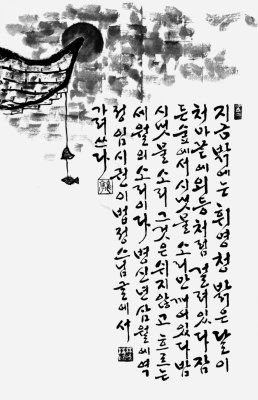 지금 밖에는 휘영청 밝은 달이
처마 끝에 외등처럼 걸려 있다 잠
든 숲에서 시냇물 소리만 깨어 있다 밤
시냇물 소리 그것은 쉬지 않고 흐르는
세월의 소리이다 병신년 삼월에 역
정 임시전이 법정 스님 글에서
가려 쓰다